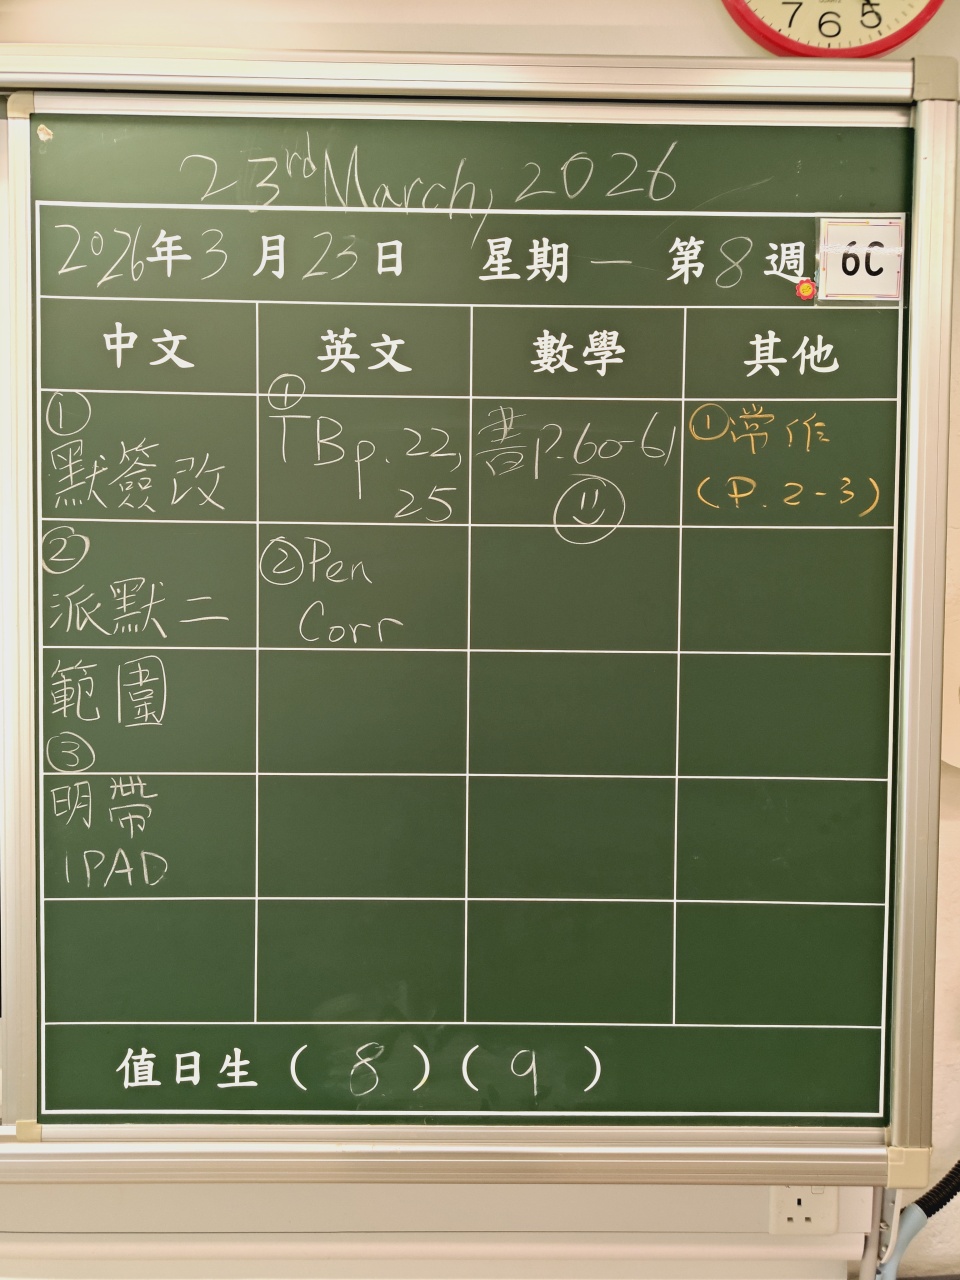 7 6 5
23rd March, 2026
2026年3月23日 星期一 第8週 6C
中文 英文 數學 其他
①
默簽改
②
派默二
範圍
③
明帶
IPAD
①
TB p. 22,
25
②Pen
Corr
書P.60-61
①常作
(P. 2-3)
值日生 ( 8 ) ( 9 )